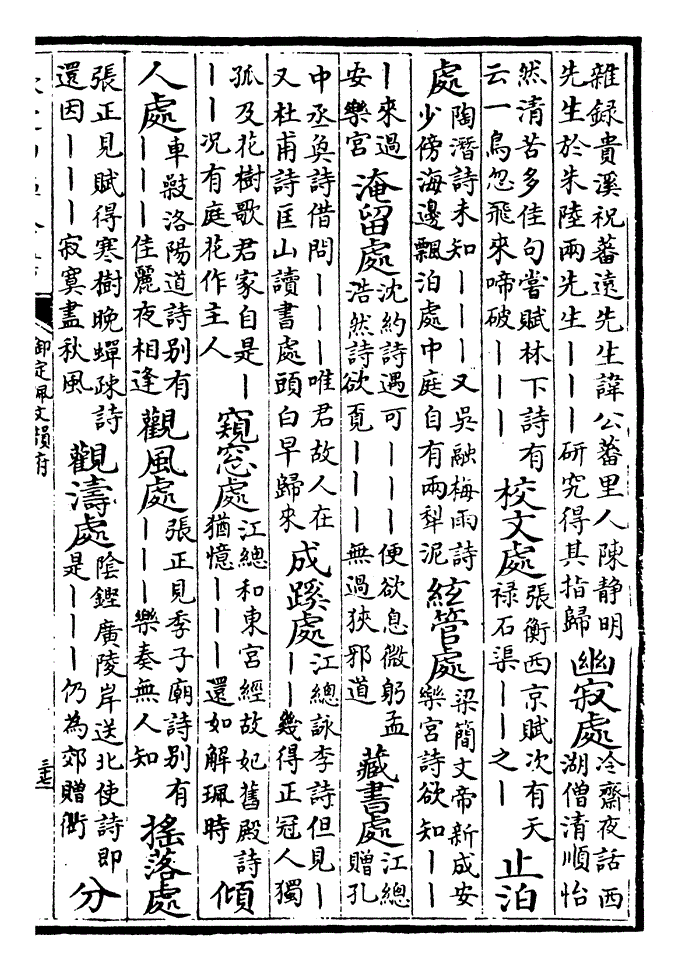 雜録貴溪祝蕃遠先生諱公蕃里人陳静明
先生於朱陸兩先生｜｜｜研究得其指歸
幽寂處
冷齋夜話西
湖僧清順怡
然清苦多佳句嘗賦林下詩有
云一鳥忽飛來啼破｜｜｜
校文處
張衡西京賦次有天
禄石渠｜｜之｜
止泊
處
陶潛詩未知｜｜｜又吳融梅雨詩
少傍海邊飄泊處中庭自有兩犁泥
絃管處
梁簡文帝新成安
樂宮詩欲知｜｜
｜來過
安樂宮
淹留處
沈約詩遇可｜｜｜便欲息微躬孟
浩然詩欲覓｜｜｜無過狹邪道
藏書處
江總
贈孔
中丞奐詩借問｜｜｜唯君故人在
又杜甫詩匡山讀書處頭白早歸來
成蹊處
江總詠李詩但見｜
｜｜幾得正冠人獨
孤及花樹歌君家自是｜
｜｜况有庭花作主人
窺窓處
江總和東宮經故妃舊殿詩
猶憶｜｜｜還如解珮時
傾
人處
車㪇洛陽道詩别有
｜｜｜佳麗夜相逢
觀風處
張正見季子廟詩别有
｜｜｜樂奏無人知
搖落處
張正見賦得寒樹晚蟬疎詩
還因｜｜｜寂寞盡秋風
觀濤處
陰鏗廣陵岸送北使詩即
是｜｜｜仍為郊贈衟
分
御定佩文韻府
三七